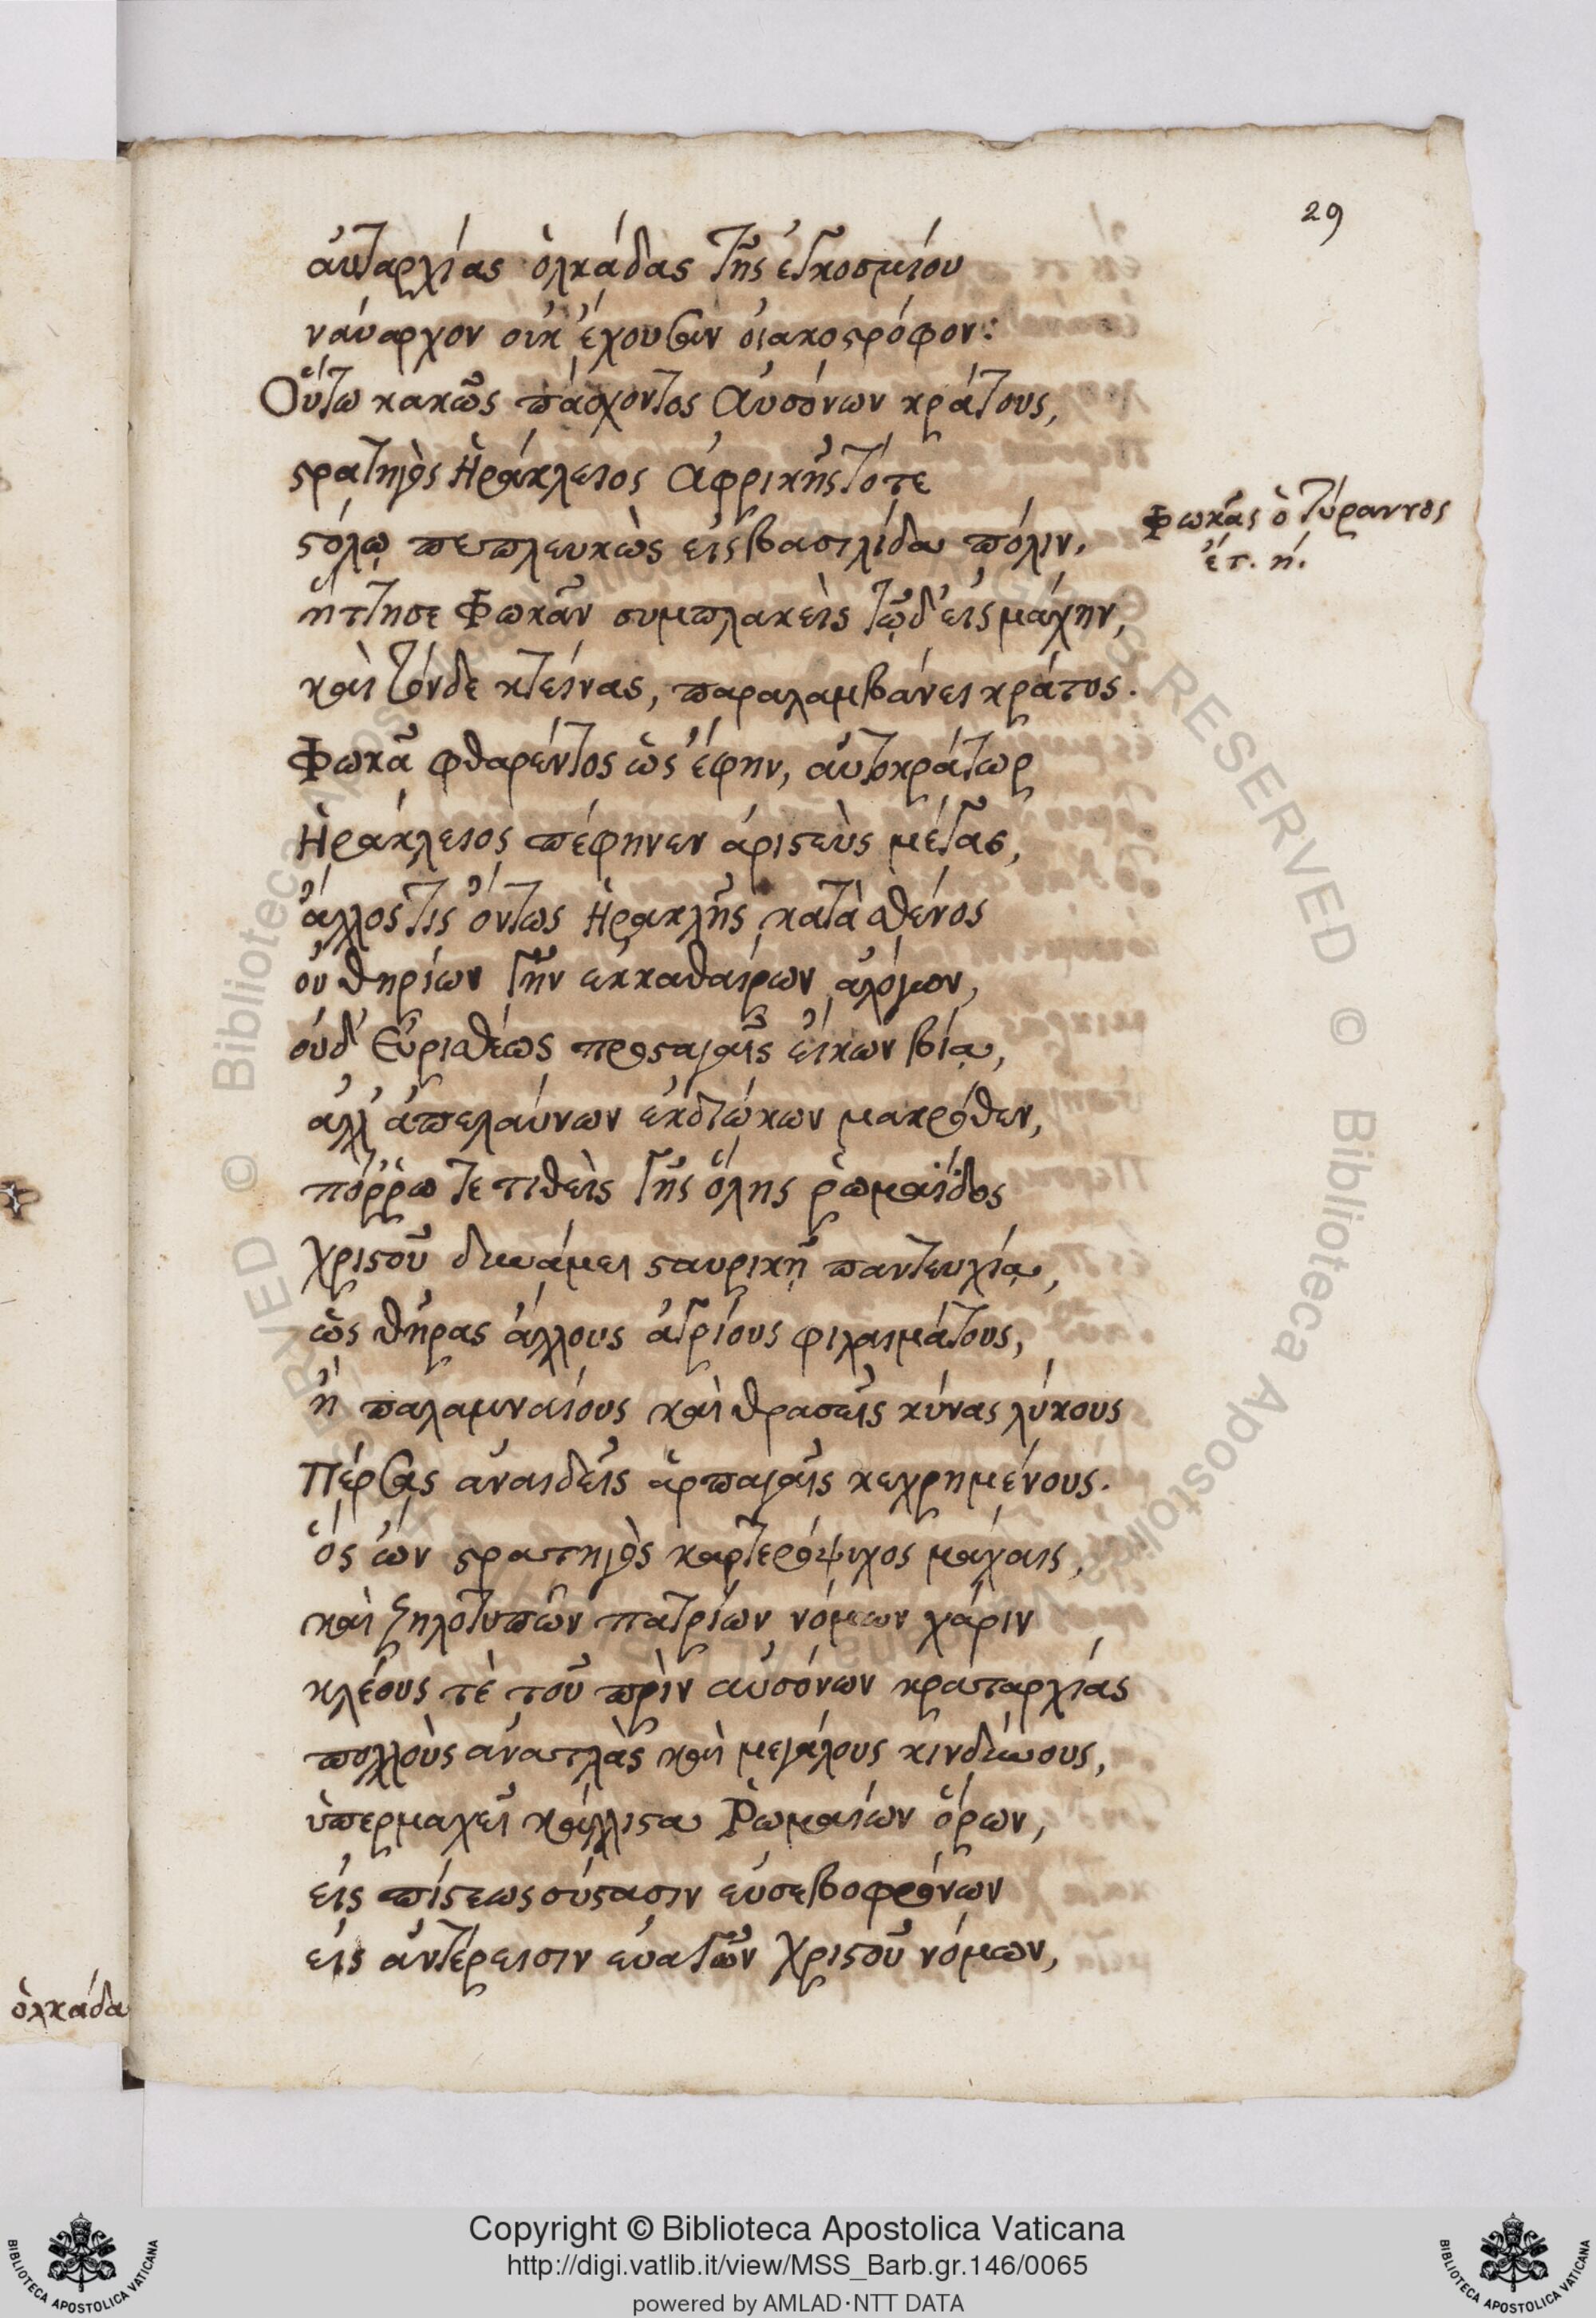 29
αὐταρχίας ὁλκάδας τῆς ἐγκοσμίου
ναύαρχον οὐκ ἔχουσαν οἰακοστρόφον:
Οὕτω κακῶς πάσχοντος Αὐσόνων κράτους,
στρατηγὸς Ἡράκλειος Ἀφρικῆς τότε
στόλῳ πεπλευκὼς εἰς βασιλίδα πόλιν,
ἥττησε Φωκᾶν συμπλακεὶς τῷδ' εἰς μάχην,
καὶ τόνδε κτείνας, παραλαμβάνει κράτος.
Φωκᾶς ὁ τύραννος
ἔτ. ή.
Φωκᾶ φθαρέντος ὡς ἔφην, αὐτοκράτωρ
Ἡράκλειος πέφηνεν ἀριστεὺς μέγας,
ἄλλος τις ὄντως Ἡρακλῆς κατὰ σθένος
οὐ θηρίων γῆν ἐκκαθαίρων ἀλόγων,
οὐδ' Εὐρισθέως προσταγαῖς εἴκων βίᾳ,
ἀλλ' ἀπελαύνων ἐκδιώκων μακρόθεν,
πόῤῥω τε τιθεὶς γῆς ὅλης ῥωμαΐδος
χριστοῦ δυνάμει σταυρικῇ παντευχίᾳ,
ὡς θῆρας ἄλλους ἀγρίους φιλαιμάτους,
ἢ παλαμναίους καὶ θρασεῖς κύνας λύκους
Πέρσας ἀναιδεῖς ἁρπαγαῖς κεχρημένους.
ὃς ὢν στρατηγὸς καρτερόψυχος μάχαις,
καὶ ζηλοτυπῶν πατρίων νόμων χάριν
κλέους τὲ τοῦ πρὶν αὐσόνων κραταρχίας
πολλοὺς ἀνατλὰς καὶ μεγάλους κινδύνους,
ὑπερμαχεῖ κάλλιστα Ῥωμαίων ὅρων,
εἰς πίστεως σύστασιν εὐσεβοφρόνων
εἰς ἀντέρεισιν εὐαγῶν χριστοῦ νόμων,
ὁλκάδα
© Biblioteca Apostolica Vaticana
RESERVED © Biblioteca Apostolica Vaticana
Copyright © Biblioteca Apostolica Vaticana
http://digi.vatlib.it/view/MSS_Barb.gr.146/0065
powered by AMLAD·NTT DATA
BIBLIOTECA APOSTOLICA VATICANA
BIBLIOTECA APOSTOLICA VATICANA